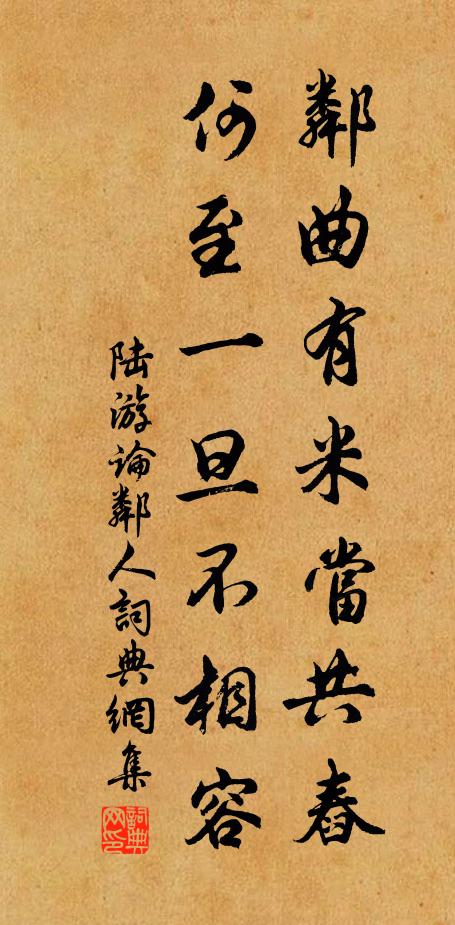 鄰曲有米當共舂
何至一旦不相容
陸游論鄰人詞典網集
詞典网印